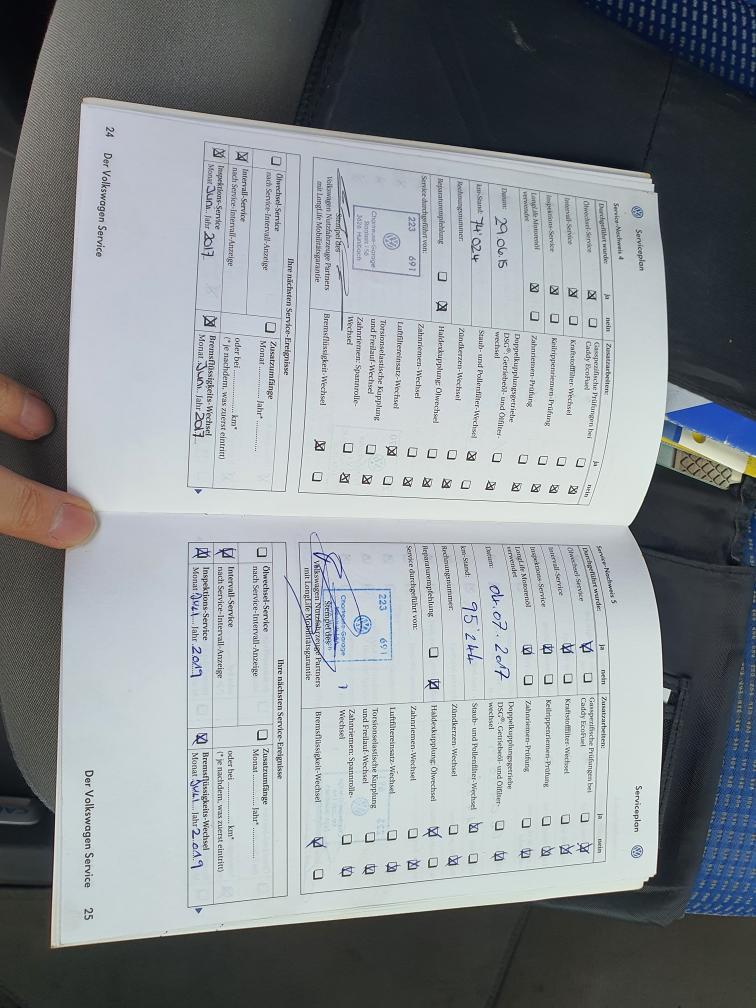 Serviceplan
Service-Nachweis 4
Durchgeführt wurde: ja nein
Ölwechsel-Service
Intervall-Service
Inspektions-Service
LongLife Motorenöl
verwendet
Datum: 29.06.15
km-Stand: 74'024
Rechnungsnummer:
Reparaturempfehlung
Service durchgeführt von:
223 691
Chartreuse-Garage
3626 Hünibach
Stempel des
Volkswagen Nutzfahrzeuge Partners
mit LongLife Mobilitätsgarantie
Zusatzarbeiten: ja nein
Gasspezifische Prüfungen bei
Caddy EcoFuel
Kraftstofffilter-Wechsel
Keilrippenriemen-Prüfung
Zahnriemen-Prüfung
Doppelkupplungsgetriebe
DSG®: Getriebeöl- und Ölfilter-
wechsel
Staub- und Pollenfilter-Wechsel
Zündkerzen-Wechsel
Haldexkupplung: Ölwechsel
Zahnriemen-Wechsel
Luftfiltereinsatz-Wechsel
Torsionselastische Kupplung
und Freilauf-Wechsel
Zahnriemen: Spannrolle-
Wechsel
Bremsflüssigkeit-Wechsel
Ihre nächsten Service-Ereignisse
Ölwechsel-Service
nach Service-Intervall-Anzeige
Intervall-Service
nach Service-Intervall-Anzeige
Inspektions-Service
Monat Juni Jahr 2017
Zusatzumfänge
Monat Jahr*
oder bei km*
(* je nachdem, was zuerst eintritt)
Bremsflüssigkeits-Wechsel
Monat Juni Jahr 2017
24 Der Volkswagen Service
Serviceplan
Service-Nachweis 5
Durchgeführt wurde: ja nein
Ölwechsel-Service
Intervall-Service
Inspektions-Service
LongLife Motorenöl
verwendet
Datum: 04.07.2017
km-Stand: 95'244
Rechnungsnummer:
Reparaturempfehlung
Service durchgeführt von:
223 691
Chartreuse-Garage
Stempel des
Volkswagen Nutzfahrzeuge Partners
mit LongLife Mobilitätsgarantie
Zusatzarbeiten: ja nein
Gasspezifische Prüfungen bei
Caddy EcoFuel
Kraftstofffilter-Wechsel
Keilrippenriemen-Prüfung
Zahnriemen-Prüfung
Doppelkupplungsgetriebe
DSG®: Getriebeöl- und Ölfilter-
wechsel
Staub- und Pollenfilter-Wechsel
Zündkerzen-Wechsel
Haldexkupplung: Ölwechsel
Zahnriemen-Wechsel
Luftfiltereinsatz-Wechsel
Torsionselastische Kupplung
und Freilauf-Wechsel
Zahnriemen: Spannrolle-
Wechsel
Bremsflüssigkeit-Wechsel
Ihre nächsten Service-Ereignisse
Ölwechsel-Service
nach Service-Intervall-Anzeige
Intervall-Service
nach Service-Intervall-Anzeige
Inspektions-Service
Monat Juli Jahr 2019
Zusatzumfänge
Monat Jahr*
oder bei km*
(* je nachdem, was zuerst eintritt)
Bremsflüssigkeits-Wechsel
Monat Juli Jahr 2019
Der Volkswagen Service 25